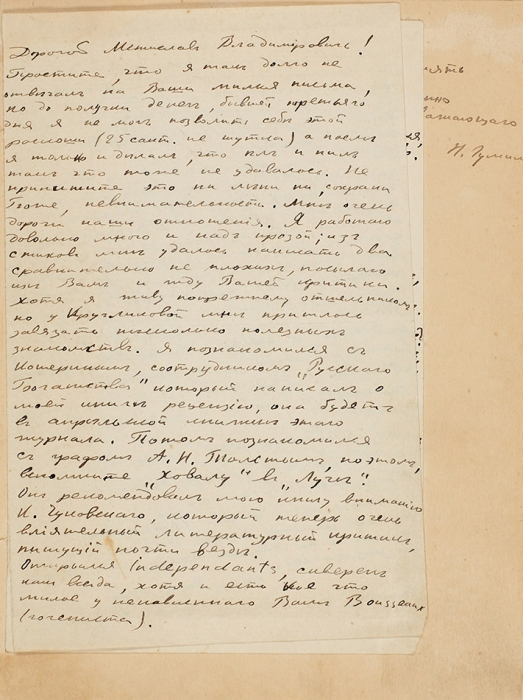 Дорогой Мстиславъ Владимiровичъ!
Простите, что я такъ долго не
отвѣчалъ на Ваши милыя письма,
но до получки денегъ, бывшей третьяго
дня я не могъ позволить себѣ этой
роскоши (25 сант. не шутка) а послѣ
я только и дѣлалъ, что ѣлъ и пилъ
такъ что тоже не удавалось. Не
пришите это ни лѣни ни, сохрани
Боже, невнимательности. Мнѣ очень
дороги наши отношенiя. Я работаю
довольно много и надъ прозой; изъ
стиховъ мнѣ удалось написать два
сравнительно не плохихъ, посылаю
ихъ Вамъ и жду Вашей критики.
Хотя я живу попрежнему отшельникомъ
но у Кругликовой мнѣ пришлось
завязать нѣсколько полезныхъ
знакомствъ. Я познакомился съ
сотрудникомъ „Русскаго
Богатства" который написалъ о
моей книгѣ рецензiю, она будетъ
въ апрѣльской книжкѣ этого
журнала. Потомъ познакомился
съ графомъ А. Н. Толстымъ, поэтомъ,
вспомните „Ховалу" въ „Лучѣ".
Онъ рекомендовалъ мою книгу вниманiю
К. Чуковскаго, который теперь очень
влiятельный литературный критикъ,
пишущiй почти вездѣ.
Открылся Indépendants, скверенъ
какъ всегда, хотя и есть кое что
милое у ненавистнаго Вамъ Rousseaux